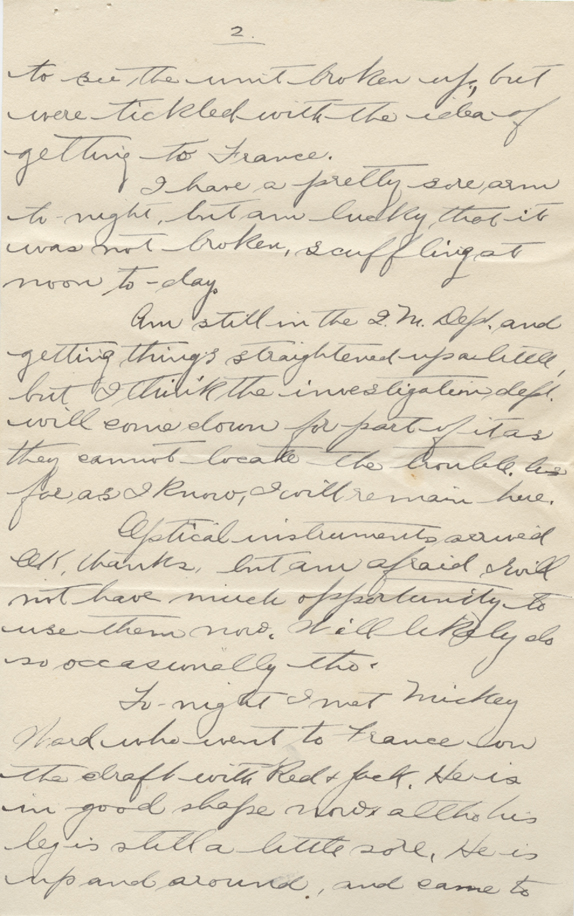 2.
to see the unit broken up, but
were tickled with the idea of
getting to France.
I have a pretty sore arm
to-night, but am lucky that it
was not broken, scuffling at
noon to-day.
Am still in the Q.M. Dept. and
getting things straightened up a little,
but I think the investigation dept.
will come down for part of it as
they cannot locate the trouble. As
far as I know, I will remain here.
Optical instruments arrived
OK, thanks, but am afraid I will
not have much opportunity to
use them now. Will likely do
so occasionally tho.
To-night I met Mickey
Ward who went to France on
the draft with Red & Jack. He is
in good shape now & altho his
leg is still a little sore, He is
up and around, and came to